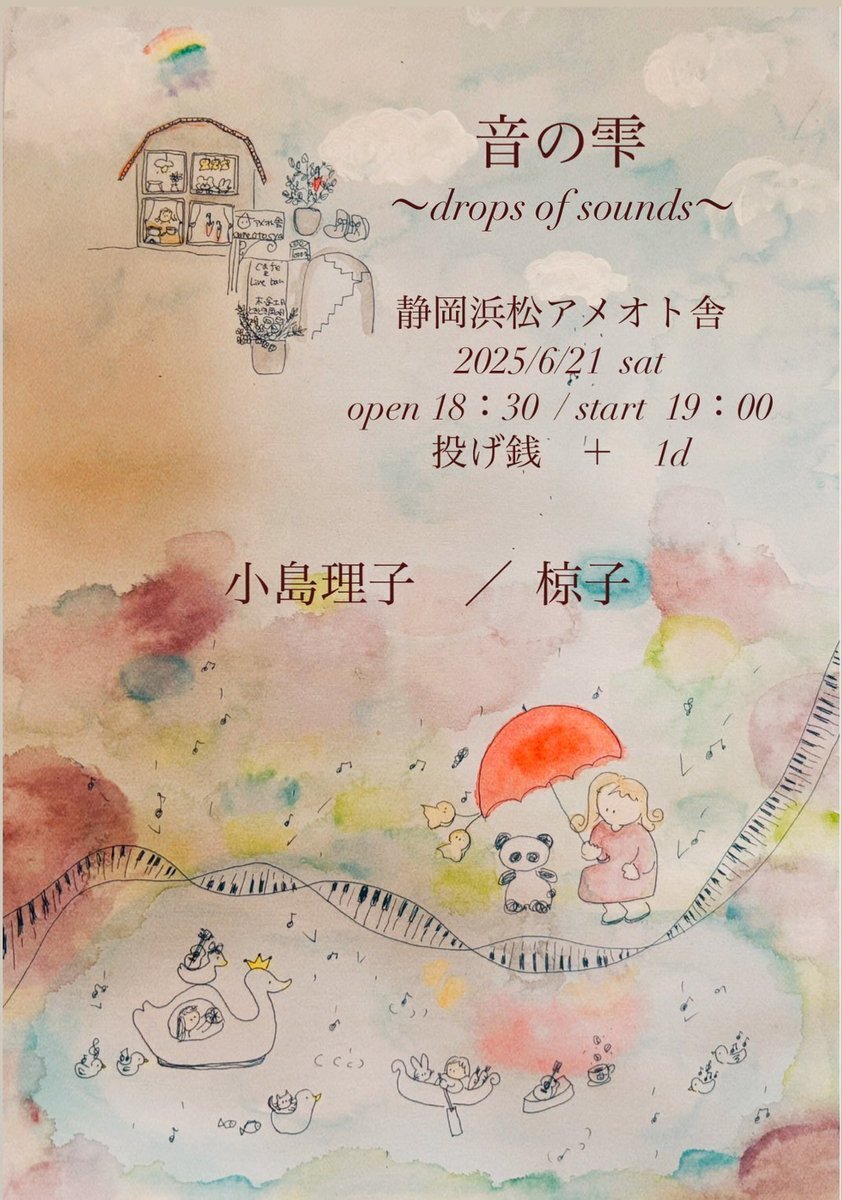 音の雫
〜drops of sounds〜
静岡浜松アメオト舎
2025/6/21 sat
open 18：30 / start 19：00
投げ銭　＋　1d
小島理子　／ 椋子
アメオト舎
ameotosya
cafe
&
Live bar